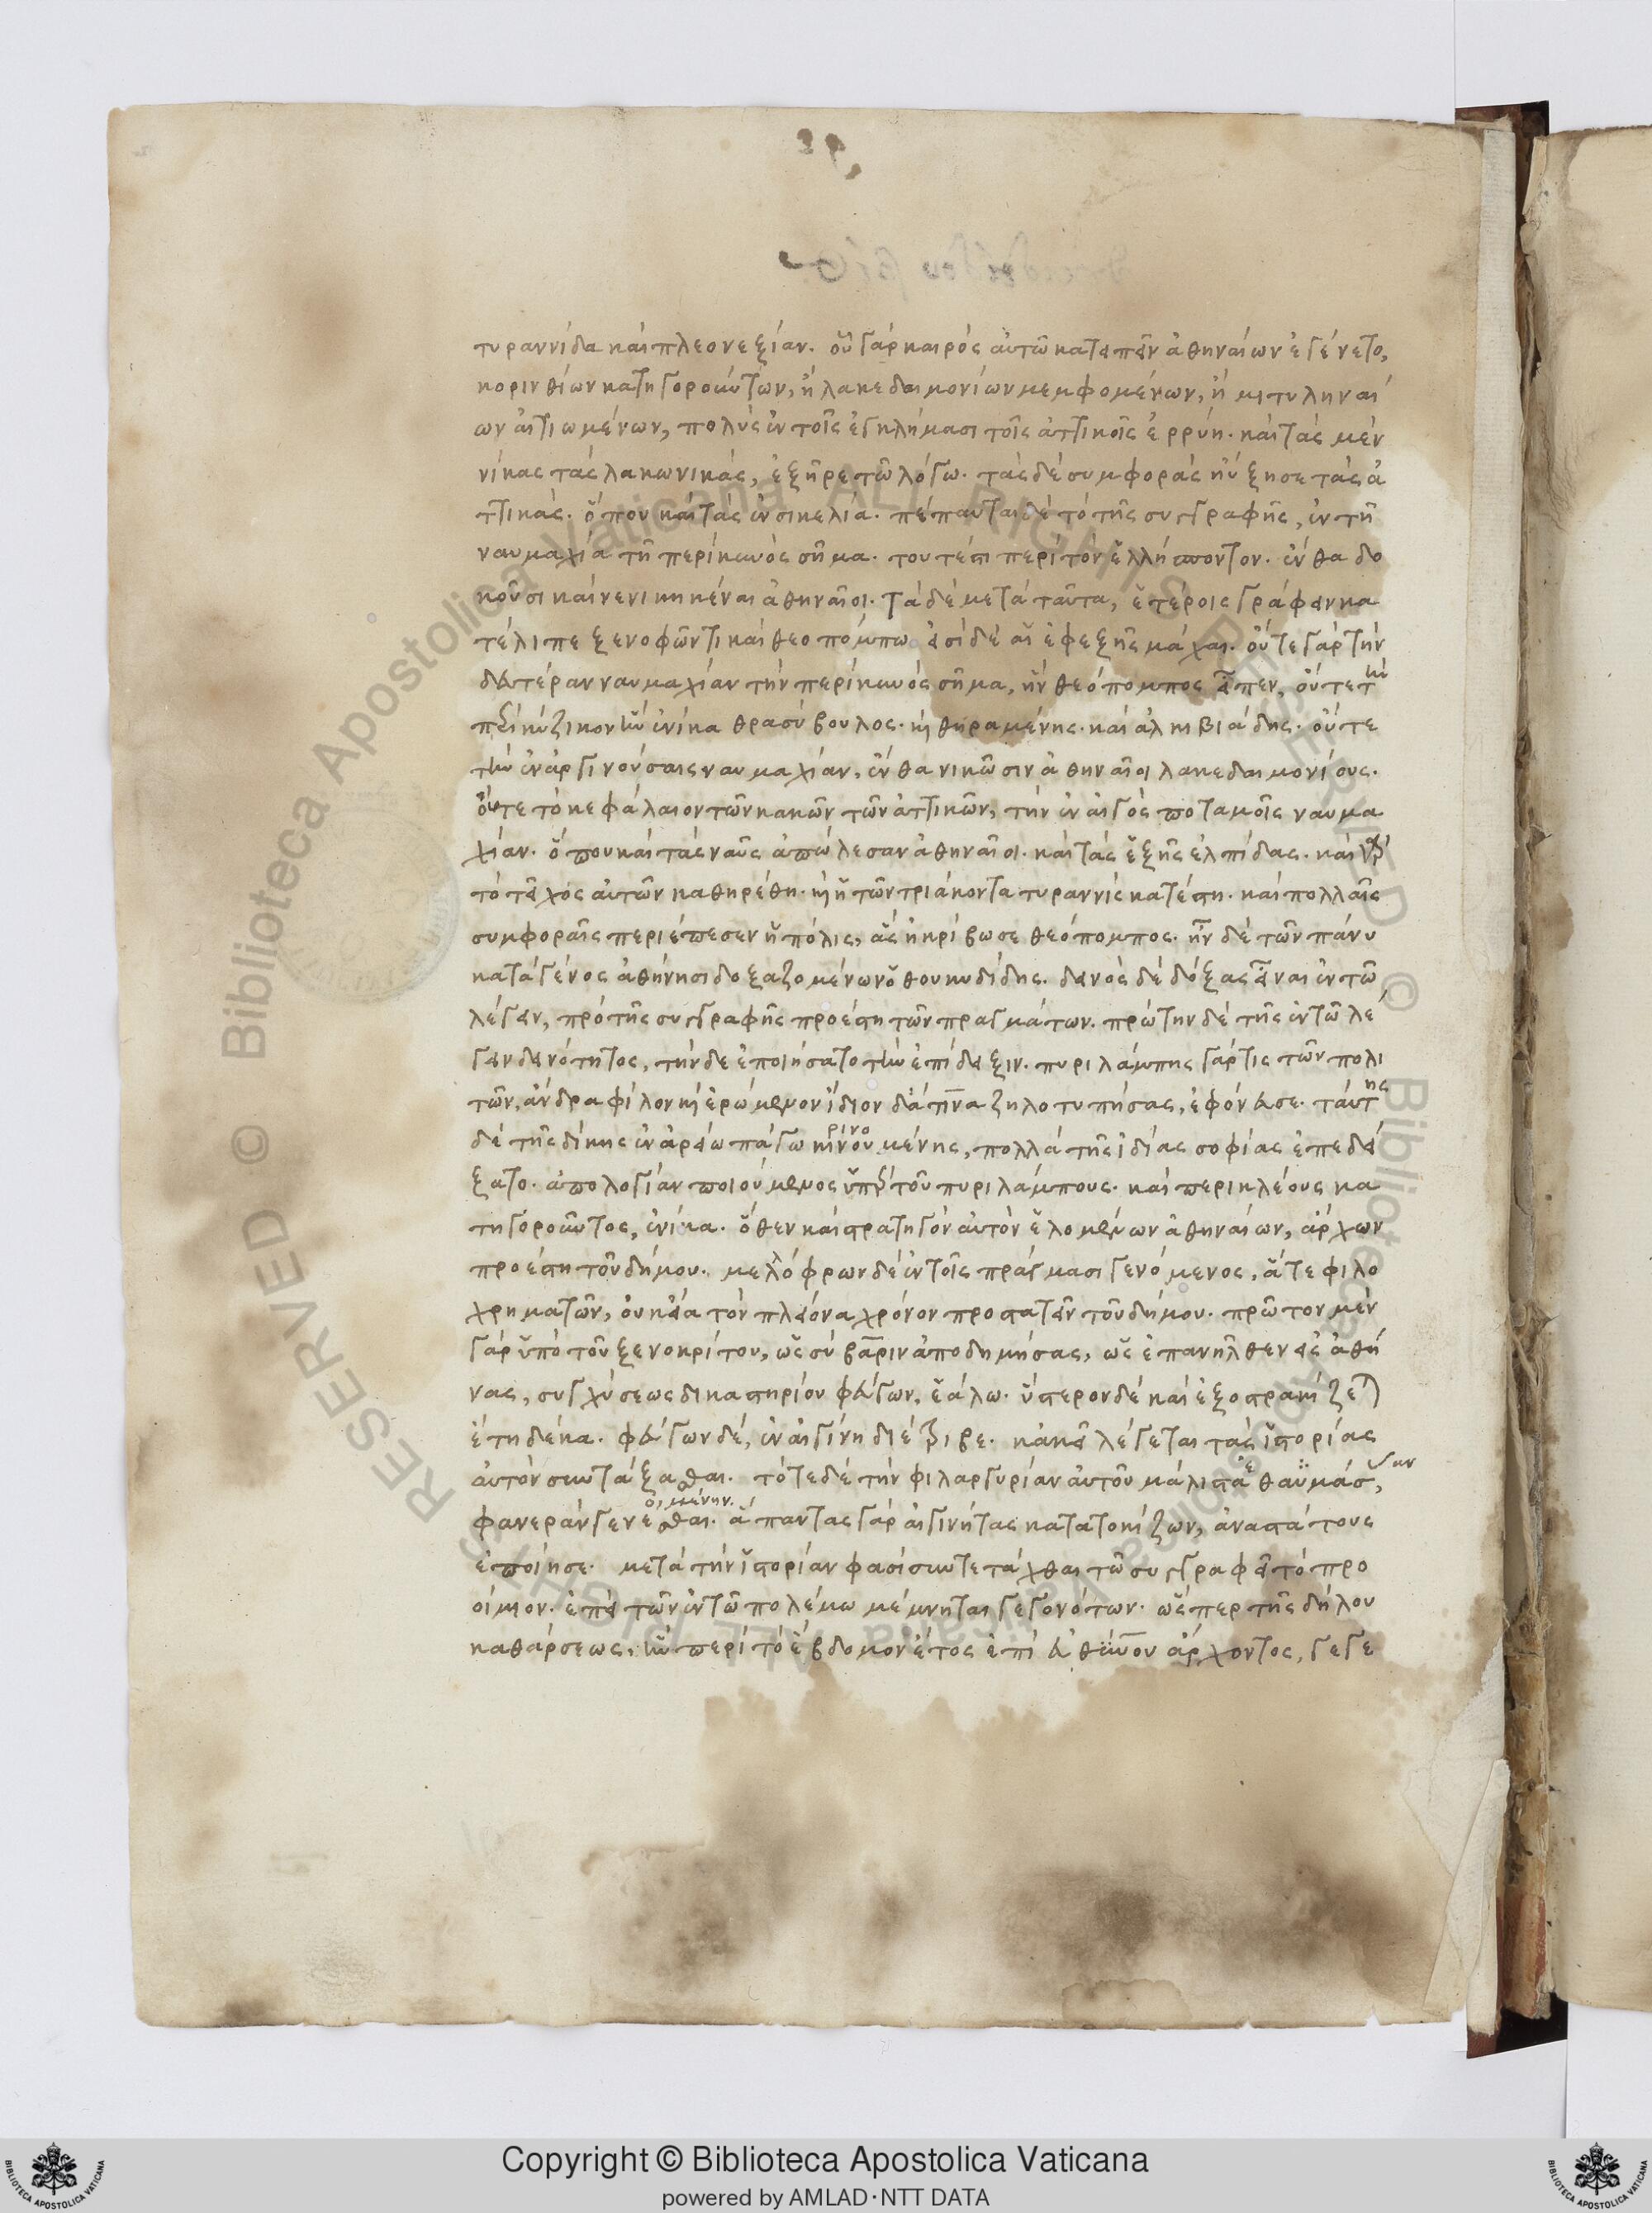 τυραννίδα καὶ πλεονεξίαν. οὐ γὰρ καιρὸς αὐτῶ κατειπεῖν ἀθηναίων ἐγένετο,
κορινθίων κατηγορούντων, ἢ λακεδαιμονίων μεμφομένων, ἢ μιτυληναί
ων αἰτιωμένων, πολὺς ἐν τοῖς ἐγκλήμασι τοῖς ἀττικοῖς ἐρρύη. καὶ τὰς μὲν
νίκας τὰς λακωνικὰς, ἐξῆρε τῶ λόγω. τὰς δὲ συμφορὰς ηὔξησε τὰς ἀ
ττικάς. ὅπου καὶ τὰς ἐν σικελία. πέπαυται δὲ τὸ τῆς συγγραφῆς, ἐν τῆ
ναυμαχία τῆ περὶ κυνὸς σῆμα. τουτέστι περὶ τὸν ἑλλήσποντον. ἔνθα δο
κοῦσι καὶ νενικηκέναι ἀθηναῖοι. τὰ δὲ μετὰ ταῦτα, ἑτέροις γράφειν κα
τέλιπε ξενοφῶντι καὶ θεοπόμπω εἰσὶ δὲ αἱ ἐφεξῆς μάχαι. οὔτε γὰρ τὴν
δευτέραν ναυμαχίαν τὴν περὶ κυνὸς σῆμα, ἣν θεόπομπος εἶπεν, οὔτε τὴν
περὶ κύζικον ἣν ἐνίκα θρασύβουλος. καὶ θηραμένης. καὶ ἀλκιβιάδης. οὔτε
τὴν ἐν ἀργινούσαις ναυμαχίαν, ἔνθα νικῶσιν ἀθηναῖοι λακεδαιμονίους.
οὔτε τὸ κεφάλαιον τῶν κακῶν τῶν ἀττικῶν, τὴν ἐν αἰγὸς ποταμοῖς ναυμα
χίαν. ὅπου καὶ τὰς ναῦς ἀπώλεσαν ἀθηναῖοι. καὶ τὰς ἑξῆς ἐλπίδας. καὶ γὰρ
τὸ τεῖχος αὐτῶν καθηρέθη. καὶ ἡ τῶν τριάκοντα τυραννὶς κατέστη. καὶ πολλαῖς
συμφοραῖς περιέπεσεν ἡ πόλις, ἃς ἠκρίβωσε θεόπομπος. ἦν δὲ τῶν πάνυ
κατὰ γένος ἀθήνησι δοξαζομένων ὁ θουκυδίδης. δεινὸς δὲ δόξας εἶναι ἐν τῶ
λέγειν, πρὸ τῆς συγγραφῆς προέστη τῶν πραγμάτων. πρώτην δὲ τῆς ἐν τῶ λέ
γειν δεινότητος, τήνδε ἐποιήσατο τὴν ἐπίδειξιν. πυριλάμπης γάρ τις τῶν πολι
τῶν, ἄνδρα φίλον καὶ ἐρώμενον ἴδιον διά τινα ζηλοτυπήσας, ἐφόνευσε. ταύτης
δὲ τῆς δίκης ἐν ἀρείω πάγω κρινομένης, πολλὰ τῆς ἰδίας σοφίας ἐπεδεί
ξατο. ἀπολογίαν ποιούμενος ὑπὲρ τοῦ πυριλάμπους. καὶ περικλέους κα
τηγοροῦντος, ἐνίκα. ὅθεν καὶ στρατηγὸν αὐτὸν ἑλομένων ἀθηναίων, ἄρχων
προέστη τοῦ δήμου. μεγαλόφρων δὲ ἐν τοῖς πράγμασι γενόμενος, ἅτε φιλο
χρηματῶν, οὐκ εἴα τὸν πλείονα χρόνον προστατεῖν τοῦ δήμου. πρῶτον μὲν
γὰρ ὑπὸ τοῦ ξενοκρίτου, ὡς σύβαριν ἀποδημήσας, ὡς ἐπανῆλθεν εἰς ἀθή
νας, συγχύσεως δικαστηρίου φεύγων, ἑάλω. ὕστερον δὲ καὶ ἐξοστρακίζεται
ἔτη δέκα. φεύγων δὲ, ἐν αἰγίνη διέτριβε. κἀκεῖ λέγεται τὰς ἱστορίας
αὐτὸν συντάξασθαι. τότε δὲ τὴν φιλαργυρίαν αὐτοῦ μάλιστα θαυμάσειν,
φανερὰν γενέσθαι. ἅπαντας γὰρ αἰγινήτας κατατοκίζων, ἀναστάτους
ἐποίησε. μετὰ τὴν ἱστορίαν φασὶ συντετάχθαι τῶ συγγραφεῖ τὸ προ
οίμιον. ἐπεὶ τῶν ἐν τῶ πολέμω μέμνηται γεγονότων. ὥσπερ τῆς δήλου
καθάρσεως, ἣν περὶ τὸ ἕβδομον ἔτος ἐπὶ εὐθύνου ἄρχοντος, γεγε